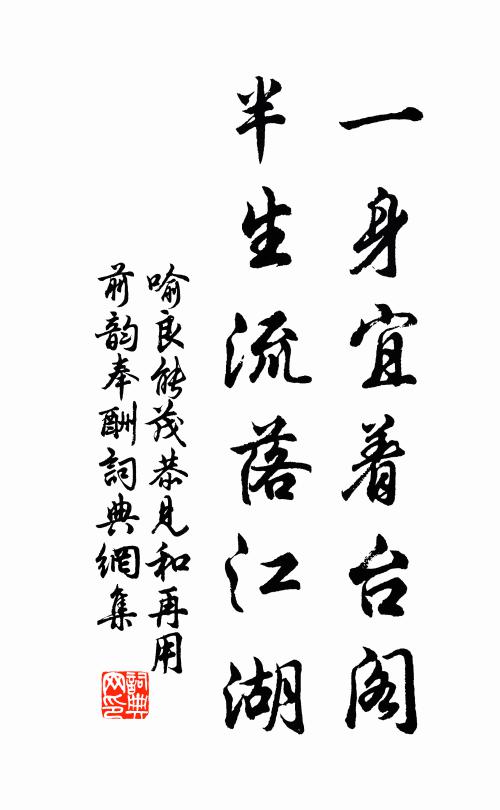 一身宜着台阁
半生流落江湖
喻良能茂恭见和再用
前韵奉酬詞典網集
詞典网印